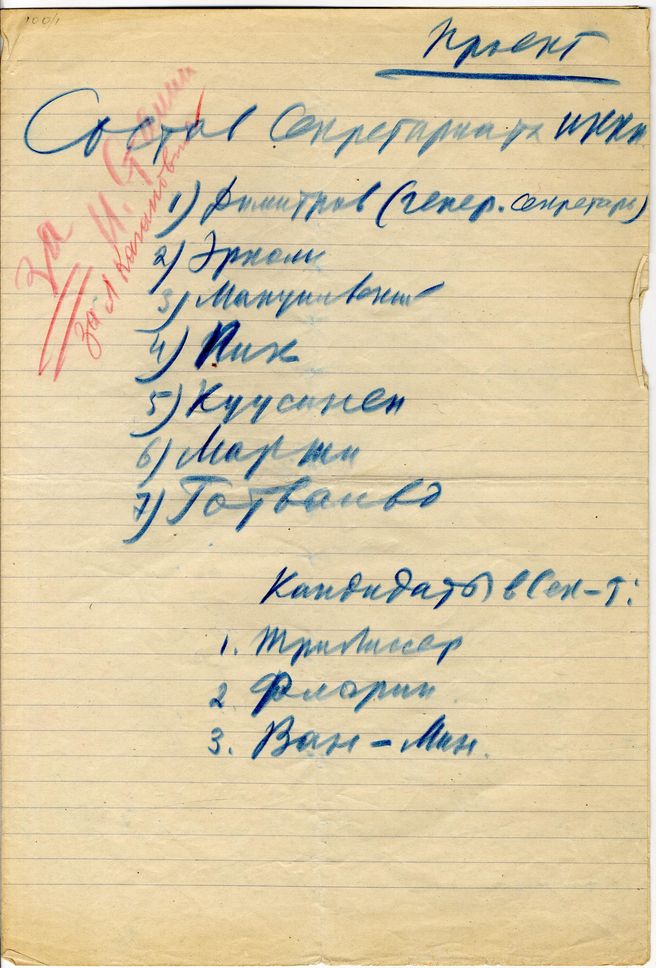 100/1
Проект
Состав Секретариата ИККИ
за И. Сталин
за Л Каганович
1) Димитров (генер. секретарь)
2) Эрколи
3) Мануильский
4) Пик
5) Куусинен
6) Марти
7) Готвальд
Кандидаты в Сек-т:
1. Трилиссер
2 Флорин
3. Ван-Мин.